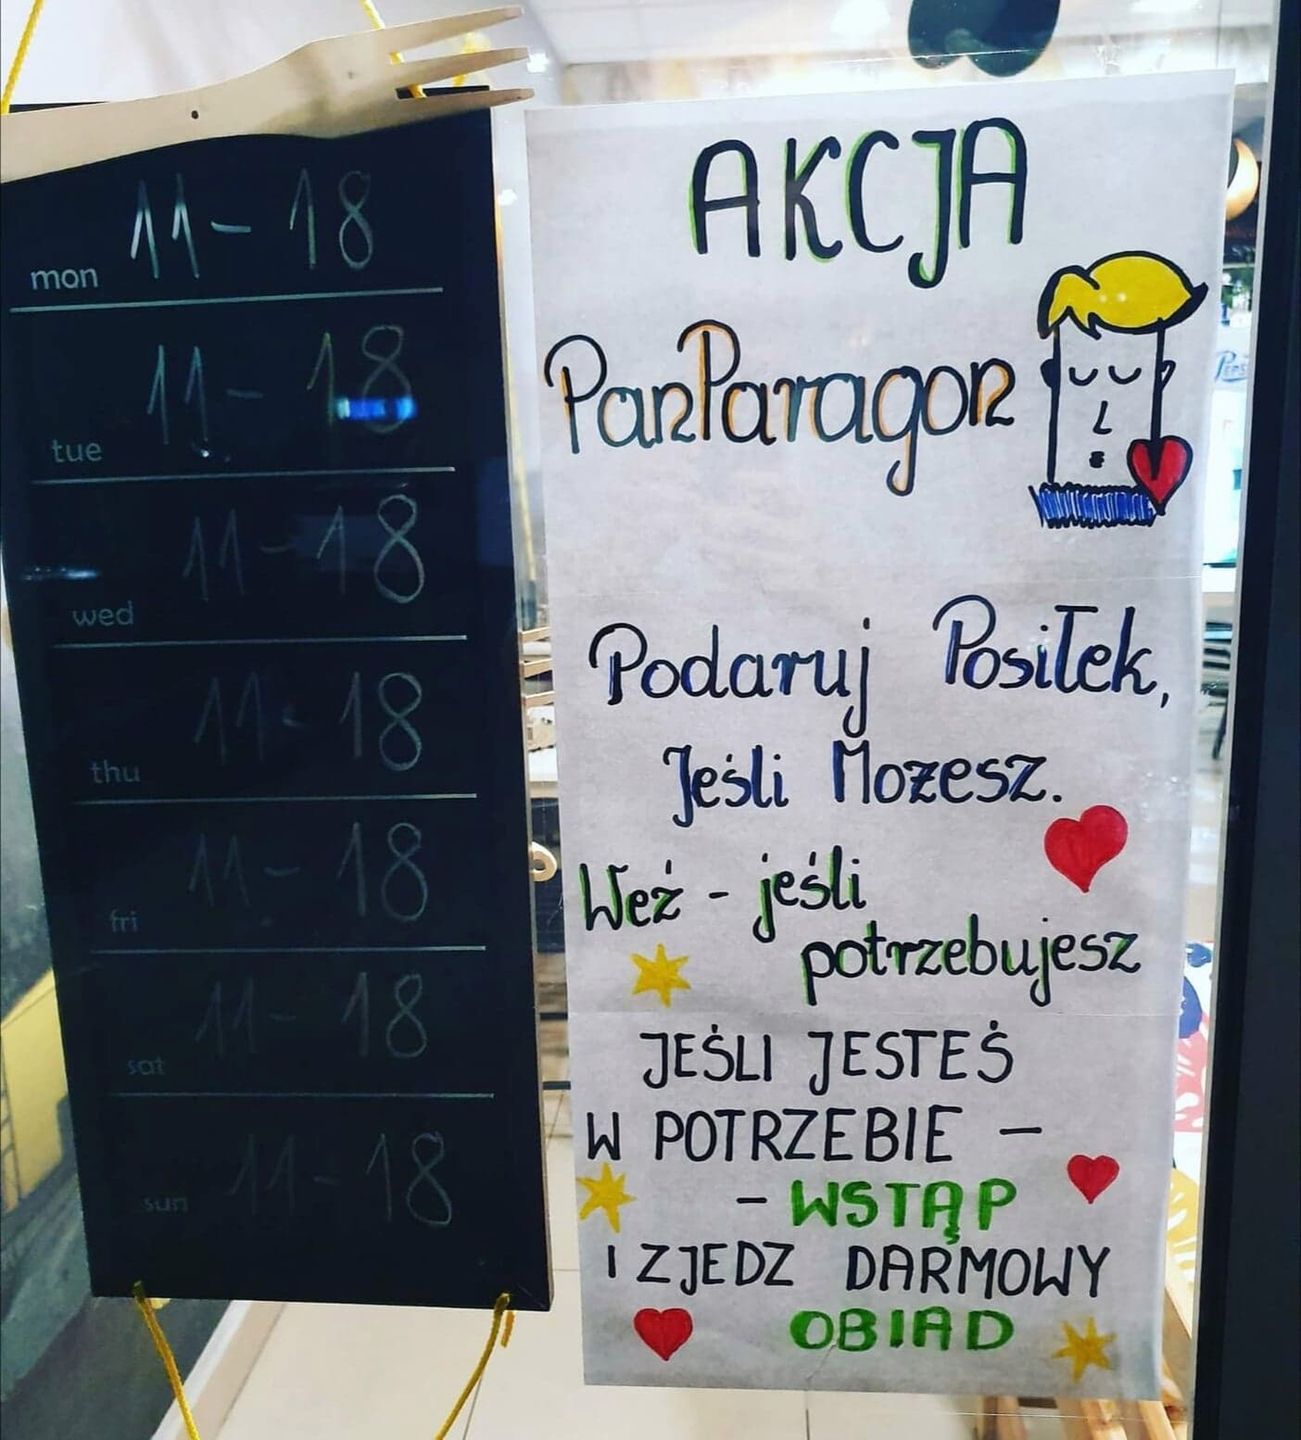 11-18
mon
11-18
tue
11-18
wed
11-18
thu
11-18
fri
11-18
sat
11-18
sun
AKCJA
PanParagon
Podaruj Posiłek,
Jeśli Możesz.
Weź - jeśli
potrzebujesz
JEŚLI JESTEŚ
W POTRZEBIE -
- WSTĄP
I ZJEDZ DARMOWY
OBIAD
PEPSI